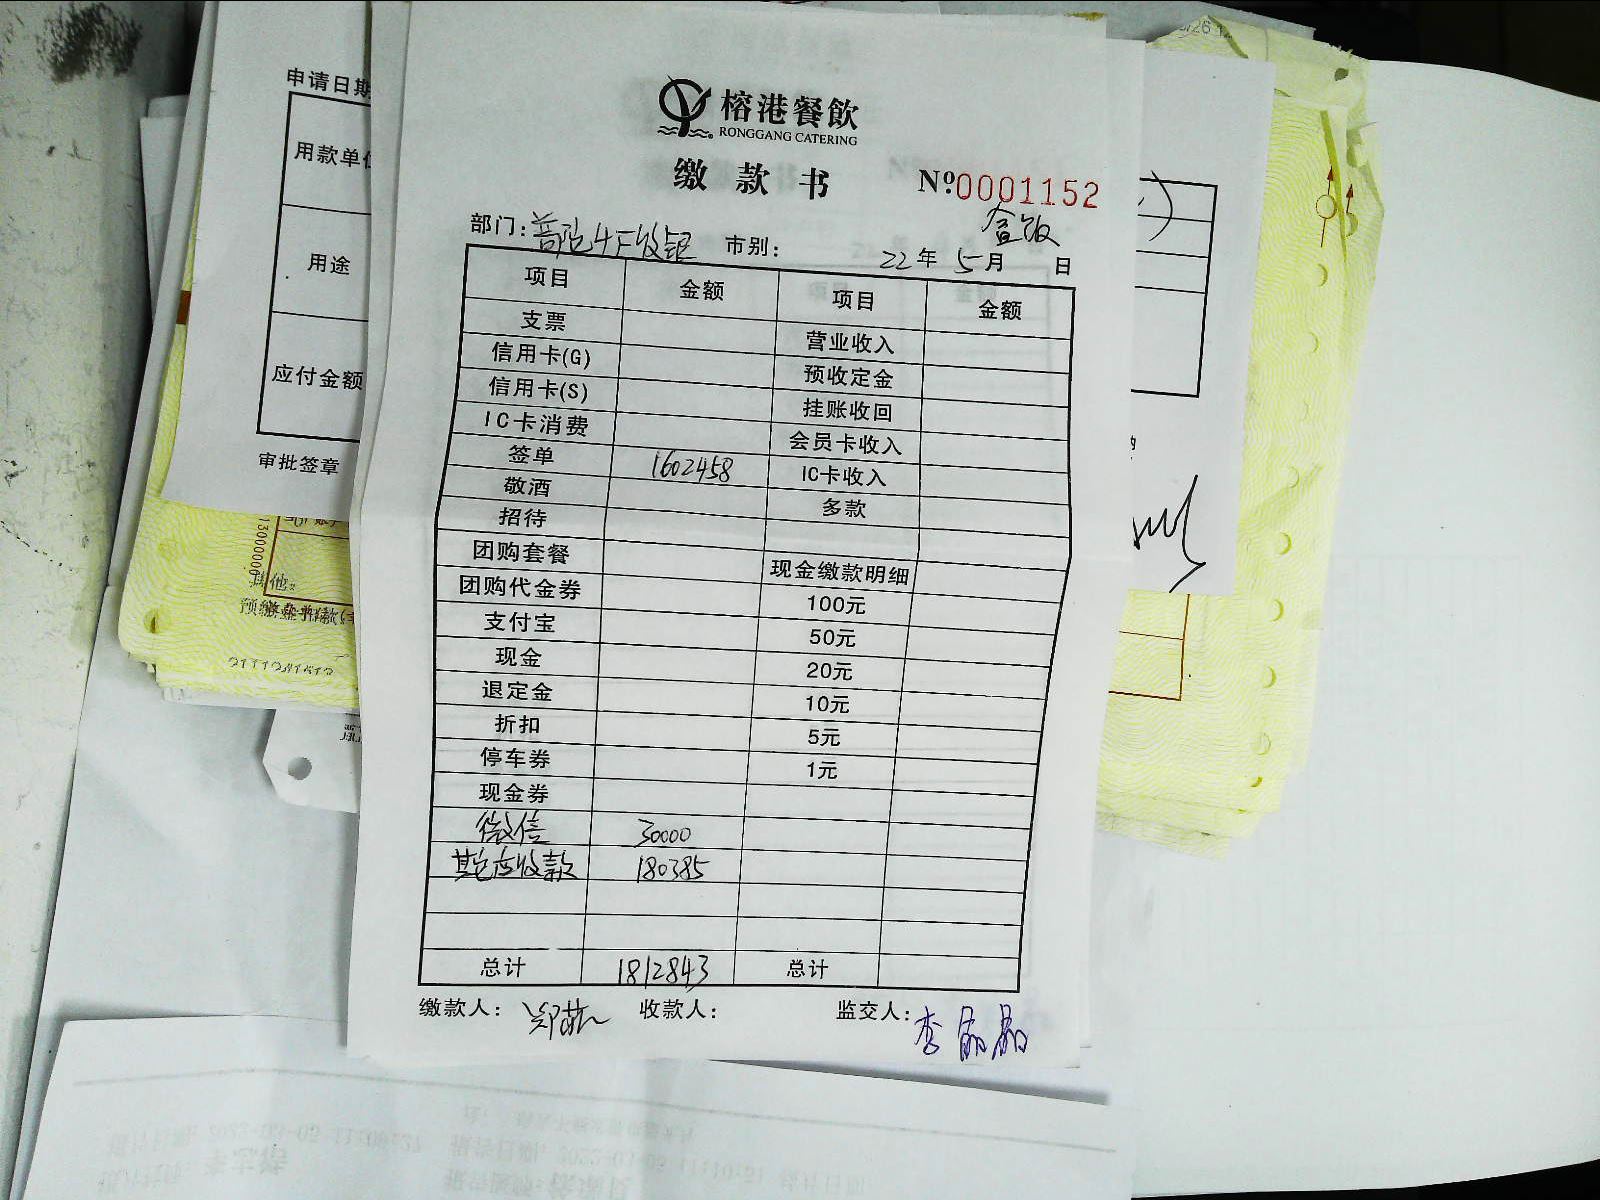 榕港餐飲
RONGGANG CATERING
缴款书
Nº:0001152
盒饭
部门：普陀4F收银 市别： 22年5月 日
项目 金额 项目 金额
支票 营业收入
信用卡(G) 预收定金
信用卡(S) 挂账收回
IC卡消费 会员卡收入
签单 1602458 IC卡收入
敬酒 多款
招待
团购套餐 现金缴款明细
团购代金券 100元
支付宝 50元
现金 20元
退定金 10元
折扣 5元
停车券 1元
现金券
微信 30000
其它应收款 180385
总计 1812843 总计
缴款人： 收款人： 监交人：李晶晶
申请日期
用款单位
用途
应付金额
审批签章